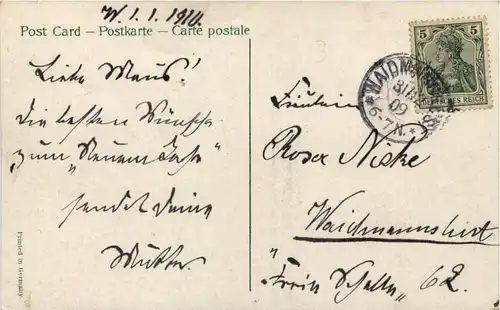 W. 1. 1. 1910.
Post Card – Postkarte – Carte postale
Liebe Maus!
Die besten Wünsche
zum „Neuen Jahre“
sendet Deine
Mutter.
Printed in Germany
5 5
DEUTSCHES REICH
WAIDMANNSLUST
31.12.
09
6-7N.
Fräulein
Rosa Nicke
Waidmannslust
„Freie Scholle“ 62.